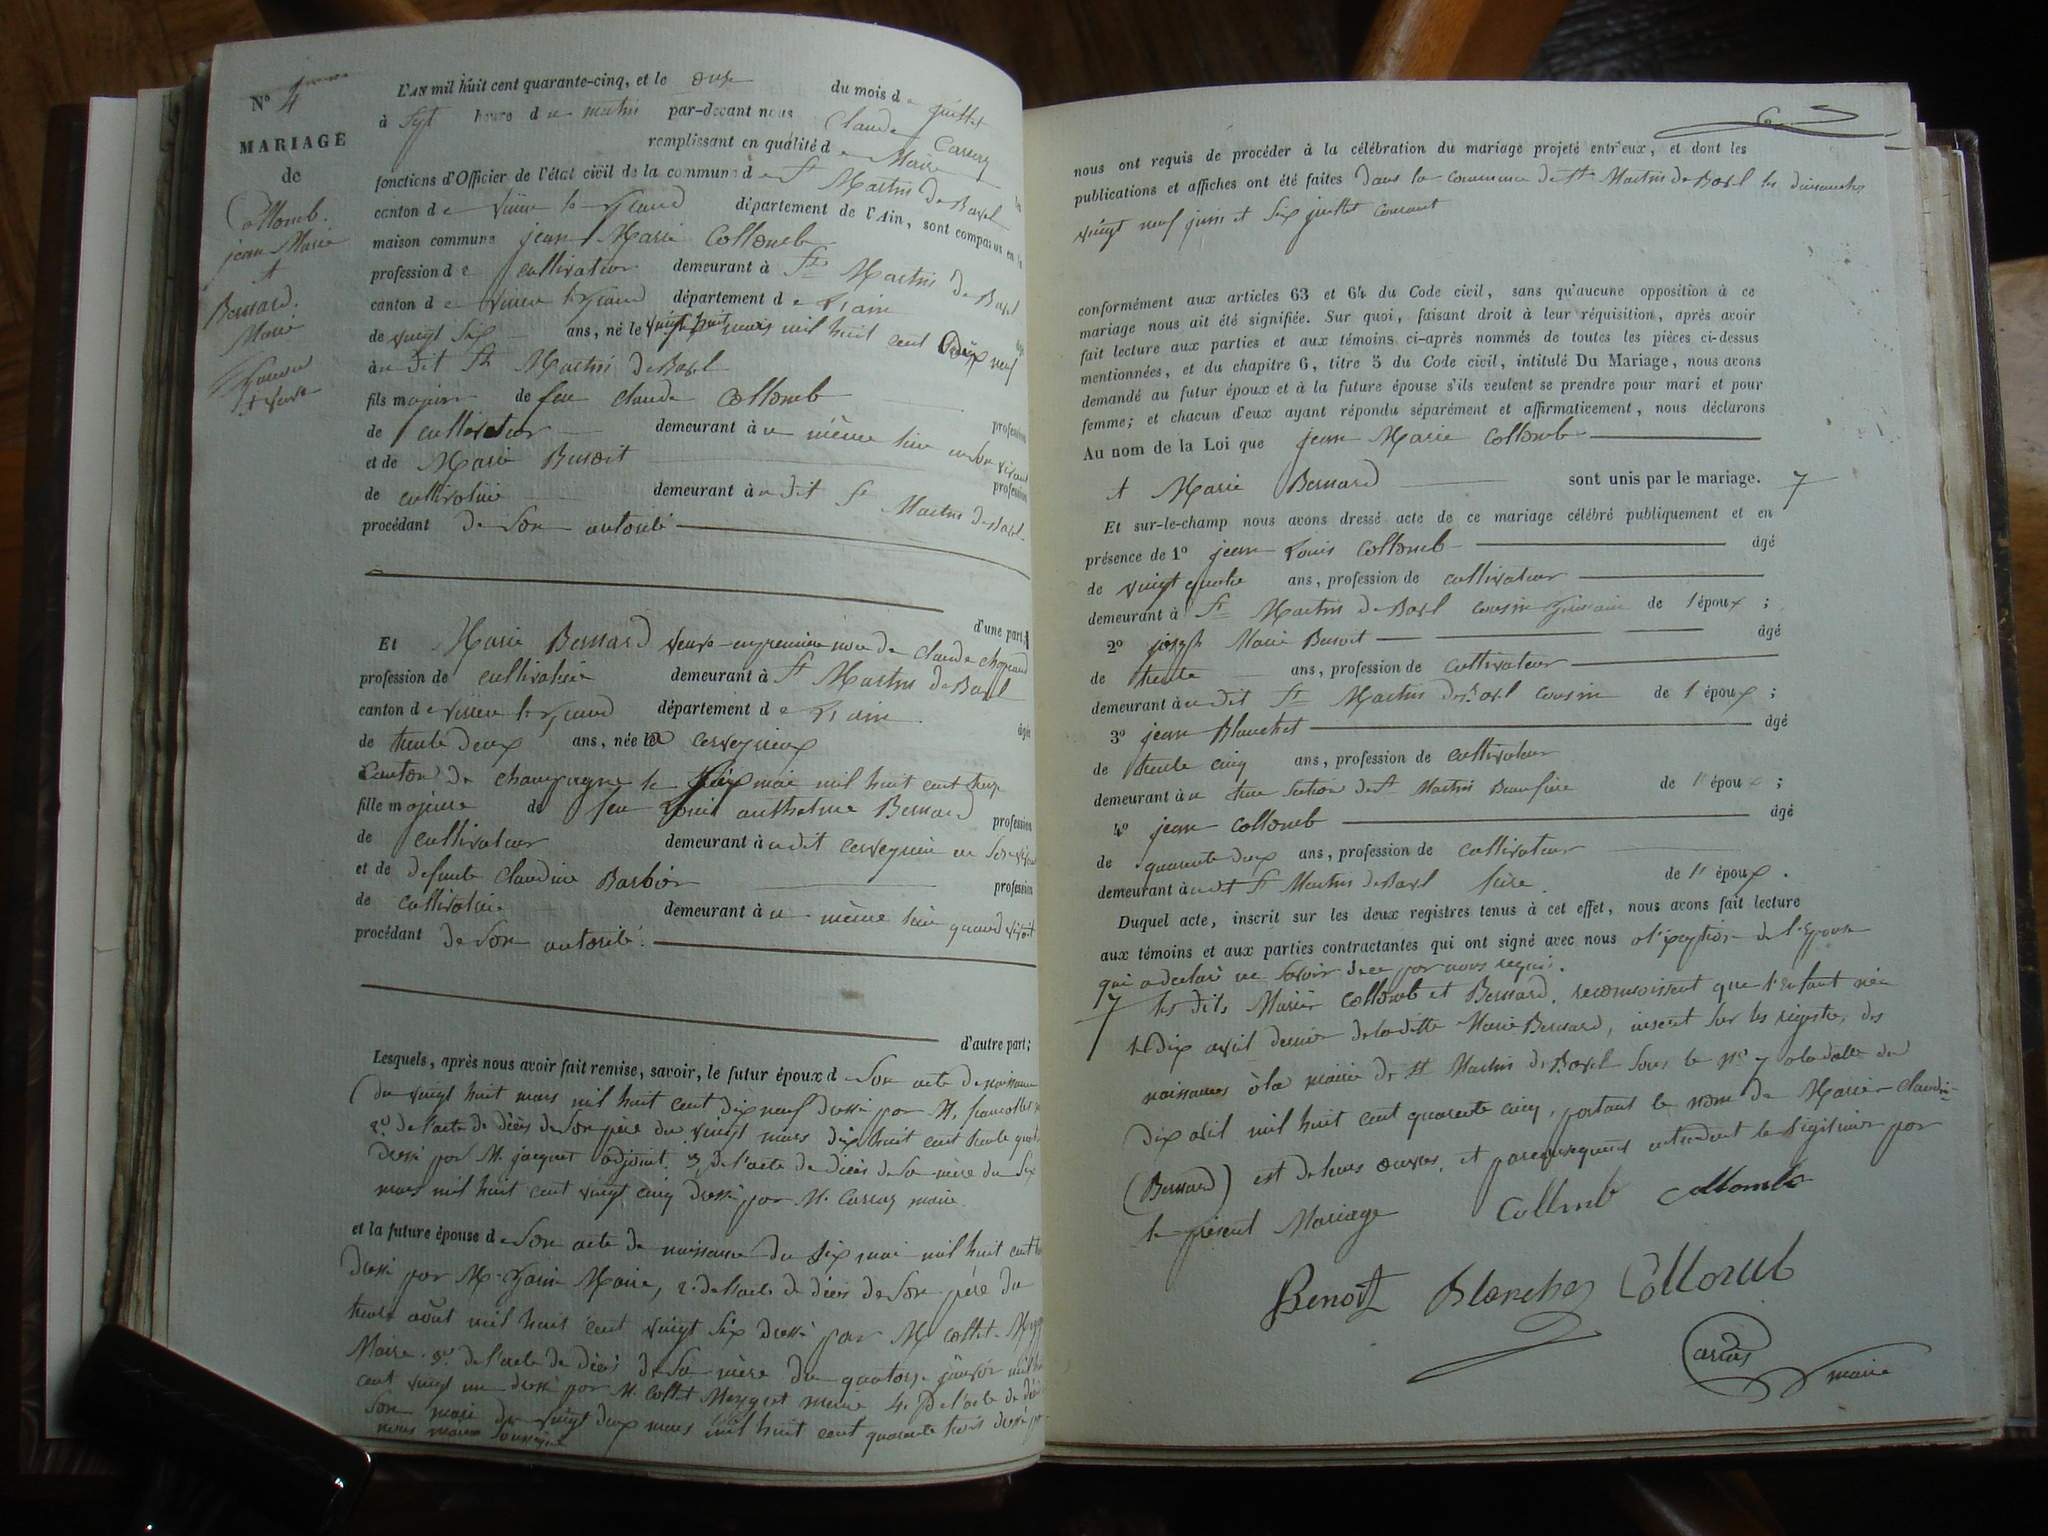 N° 4
MARIAGE
de
Collomb.
jean Marie
et
Bernard.
Marie
veuve
L'AN mil huit cent quarante-cinq, et le onze du mois de juillet
à sept heure du matin par-devant nous Claude Carcay
remplissant en qualité de Maire
fonctions d'Officier de l'état civil de la commune de St Martin de Bavel
canton de virieu le grand département de l'Ain, sont comparus en la
maison commune jean Marie Collomb
profession de cultivateur demeurant à St Martin de Bavel
canton de virieu le grand département de l'ain
de vingt six ans, né le vingt huit mars mil huit cent dix neuf
au dit St Martin de Bavel
fils majeur de feu Claude Collomb
profession
de cultivateur demeurant à au même lieu en son vivant
et de Marie Benoit profession
de cultivatrice demeurant à au dit St Martin de Bavel
procédant de son autorité
d'une part;
Et Marie Bernard veuve en première noce de Claude
profession de cultivatrice demeurant à St Martin de Bavel
canton de virieu le grand département de l'ain
âgé
de trente deux ans, née à cerveyrieux
canton de champagne le six mai mil huit cent treize
fille majeure de feu Louis anthelme Bernard profession
de cultivateur demeurant à au dit cerveyrieu en son vivant
et de defunte Claudine Barbier profession
de cultivatrice demeurant à au même lieu quand vivait
procédant de son autorité.
d'autre part;
Lesquels, après nous avoir fait remise, savoir, le futur époux de son acte de naissance
du vingt huit mars mil huit cent dix neuf dressé par M.
2° de l'acte de décès de son père du vingt mars dix huit cent trente quatre
dressé par M. jacquet adjoint. 3° de l'acte de décès de sa mère du six
mars mil huit cent vingt cinq dressé par M. Carcay maire
et la future épouse de son acte de naissance du six mai mil huit cent
dressé par M. Maire, 2° de l'acte de décès de son père du
trente août mil huit cent vingt six dressé par M. Collet
Maire. 3° de l'acte de décès de sa mère du quatorze janvier mil huit
cent vingt un dressé par M. Collet Meygret maire 4° de l'acte de décès
son mari du vingt deux mars mil huit cent quarante trois dressé par
nous maire soussigné
nous ont requis de procéder à la célébration du mariage projeté entr'eux, et dont les
publications et affiches ont été faites dans la commune de St Martin de Bavel les dimanches
vingt neuf juin et six juillet courant
conformément aux articles 63 et 64 du Code civil, sans qu'aucune opposition à ce
mariage nous ait été signifiée. Sur quoi, faisant droit à leur réquisition, après avoir
fait lecture aux parties et aux témoins ci-après nommés de toutes les pièces ci-dessus
mentionnées, et du chapitre 6, titre 5 du Code civil, intitulé Du Mariage, nous avons
demandé au futur époux et à la future épouse s'ils veulent se prendre pour mari et pour
femme; et chacun d'eux ayant répondu séparément et affirmativement, nous déclarons
Au nom de la Loi que jean Marie Collomb
et Marie Bernard sont unis par le mariage.
Et sur-le-champ nous avons dressé acte de ce mariage célébré publiquement et en
présence de 1° jean Louis Collomb âgé
de vingt quatre ans, profession de cultivateur
demeurant à St Martin de Bavel cousin germain de l'époux;
2° joseph Marie Benoit âgé
de trente ans, profession de cultivateur
demeurant à au dit St Martin de Bavel cousin de l'époux;
3° jean Blanchet âgé
de trente cinq ans, profession de cultivateur
demeurant à une section de St Martin Beaufrère de l'époux;
4° jean Collomb âgé
de quarante deux ans, profession de cultivateur
demeurant à au dit St Martin de Bavel frère. de l'époux.
Duquel acte, inscrit sur les deux registres tenus à cet effet, nous avons fait lecture
aux témoins et aux parties contractantes qui ont signé avec nous à l'exeption de l'Epouse
qui a déclaré ne savoir de ce par nous requis.
les dits Mariés Collomb et Bernard, reconnoissent que l'Enfant née
le dix avril dernier de la ditte Marie Bernard, inscrit sur les registres des
naissances à la mairie de St Martin de Bavel sous le N° 7 à la date du
dix avril mil huit cent quarante cinq, portant le nom de Marie Claudi-
(Bernard) est de leurs œuvres, et parconséquent entendent le légitimer par
le présent Mariage Collomb Collomb
Benoit Blanchet Collomb
Carcay maire